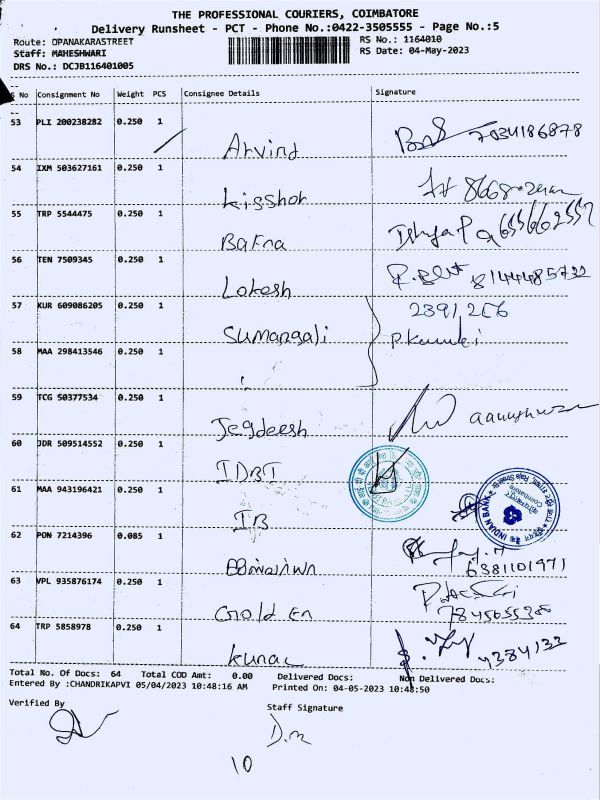 THE PROFESSIONAL COURIERS, COIMBATORE
Delivery Runsheet - PCT - Phone No.:0422-3505555 - Page No.:5
Route: OPANAKARASTREET RS No.: 1164010
Staff: MAHESHWARI RS Date: 04-May-2023
DRS No.: DCJB116401005
S No Consignment No Weight PCS Consignee Details Signature
53 PLI 200238282 0.250 1 Arvind 7034186878
54 IXM 503627161 0.250 1 Kisshor
55 TRP 5544475 0.250 1 Bafna
56 TEN 7509345 0.250 1 Lokesh
57 KUR 609086205 0.250 1 Sumangali
58 MAA 298413546 0.250 1
59 TCG 50377534 0.250 1 Jegdeesh
60 JDR 509514552 0.250 1 IDBI
61 MAA 943196421 0.250 1 IB INDIAN BANK
62 PON 7214396 0.085 1 6381101971
63 VPL 935876174 0.250 1 Golden
64 TRP 5858978 0.250 1 Kunal
Total No. Of Docs: 64 Total COD Amt: 0.00 Delivered Docs: Non Delivered Docs:
Entered By :CHANDRIKAPVI 05/04/2023 10:48:16 AM Printed On: 04-05-2023 10:48:50
Verified By Staff Signature
10